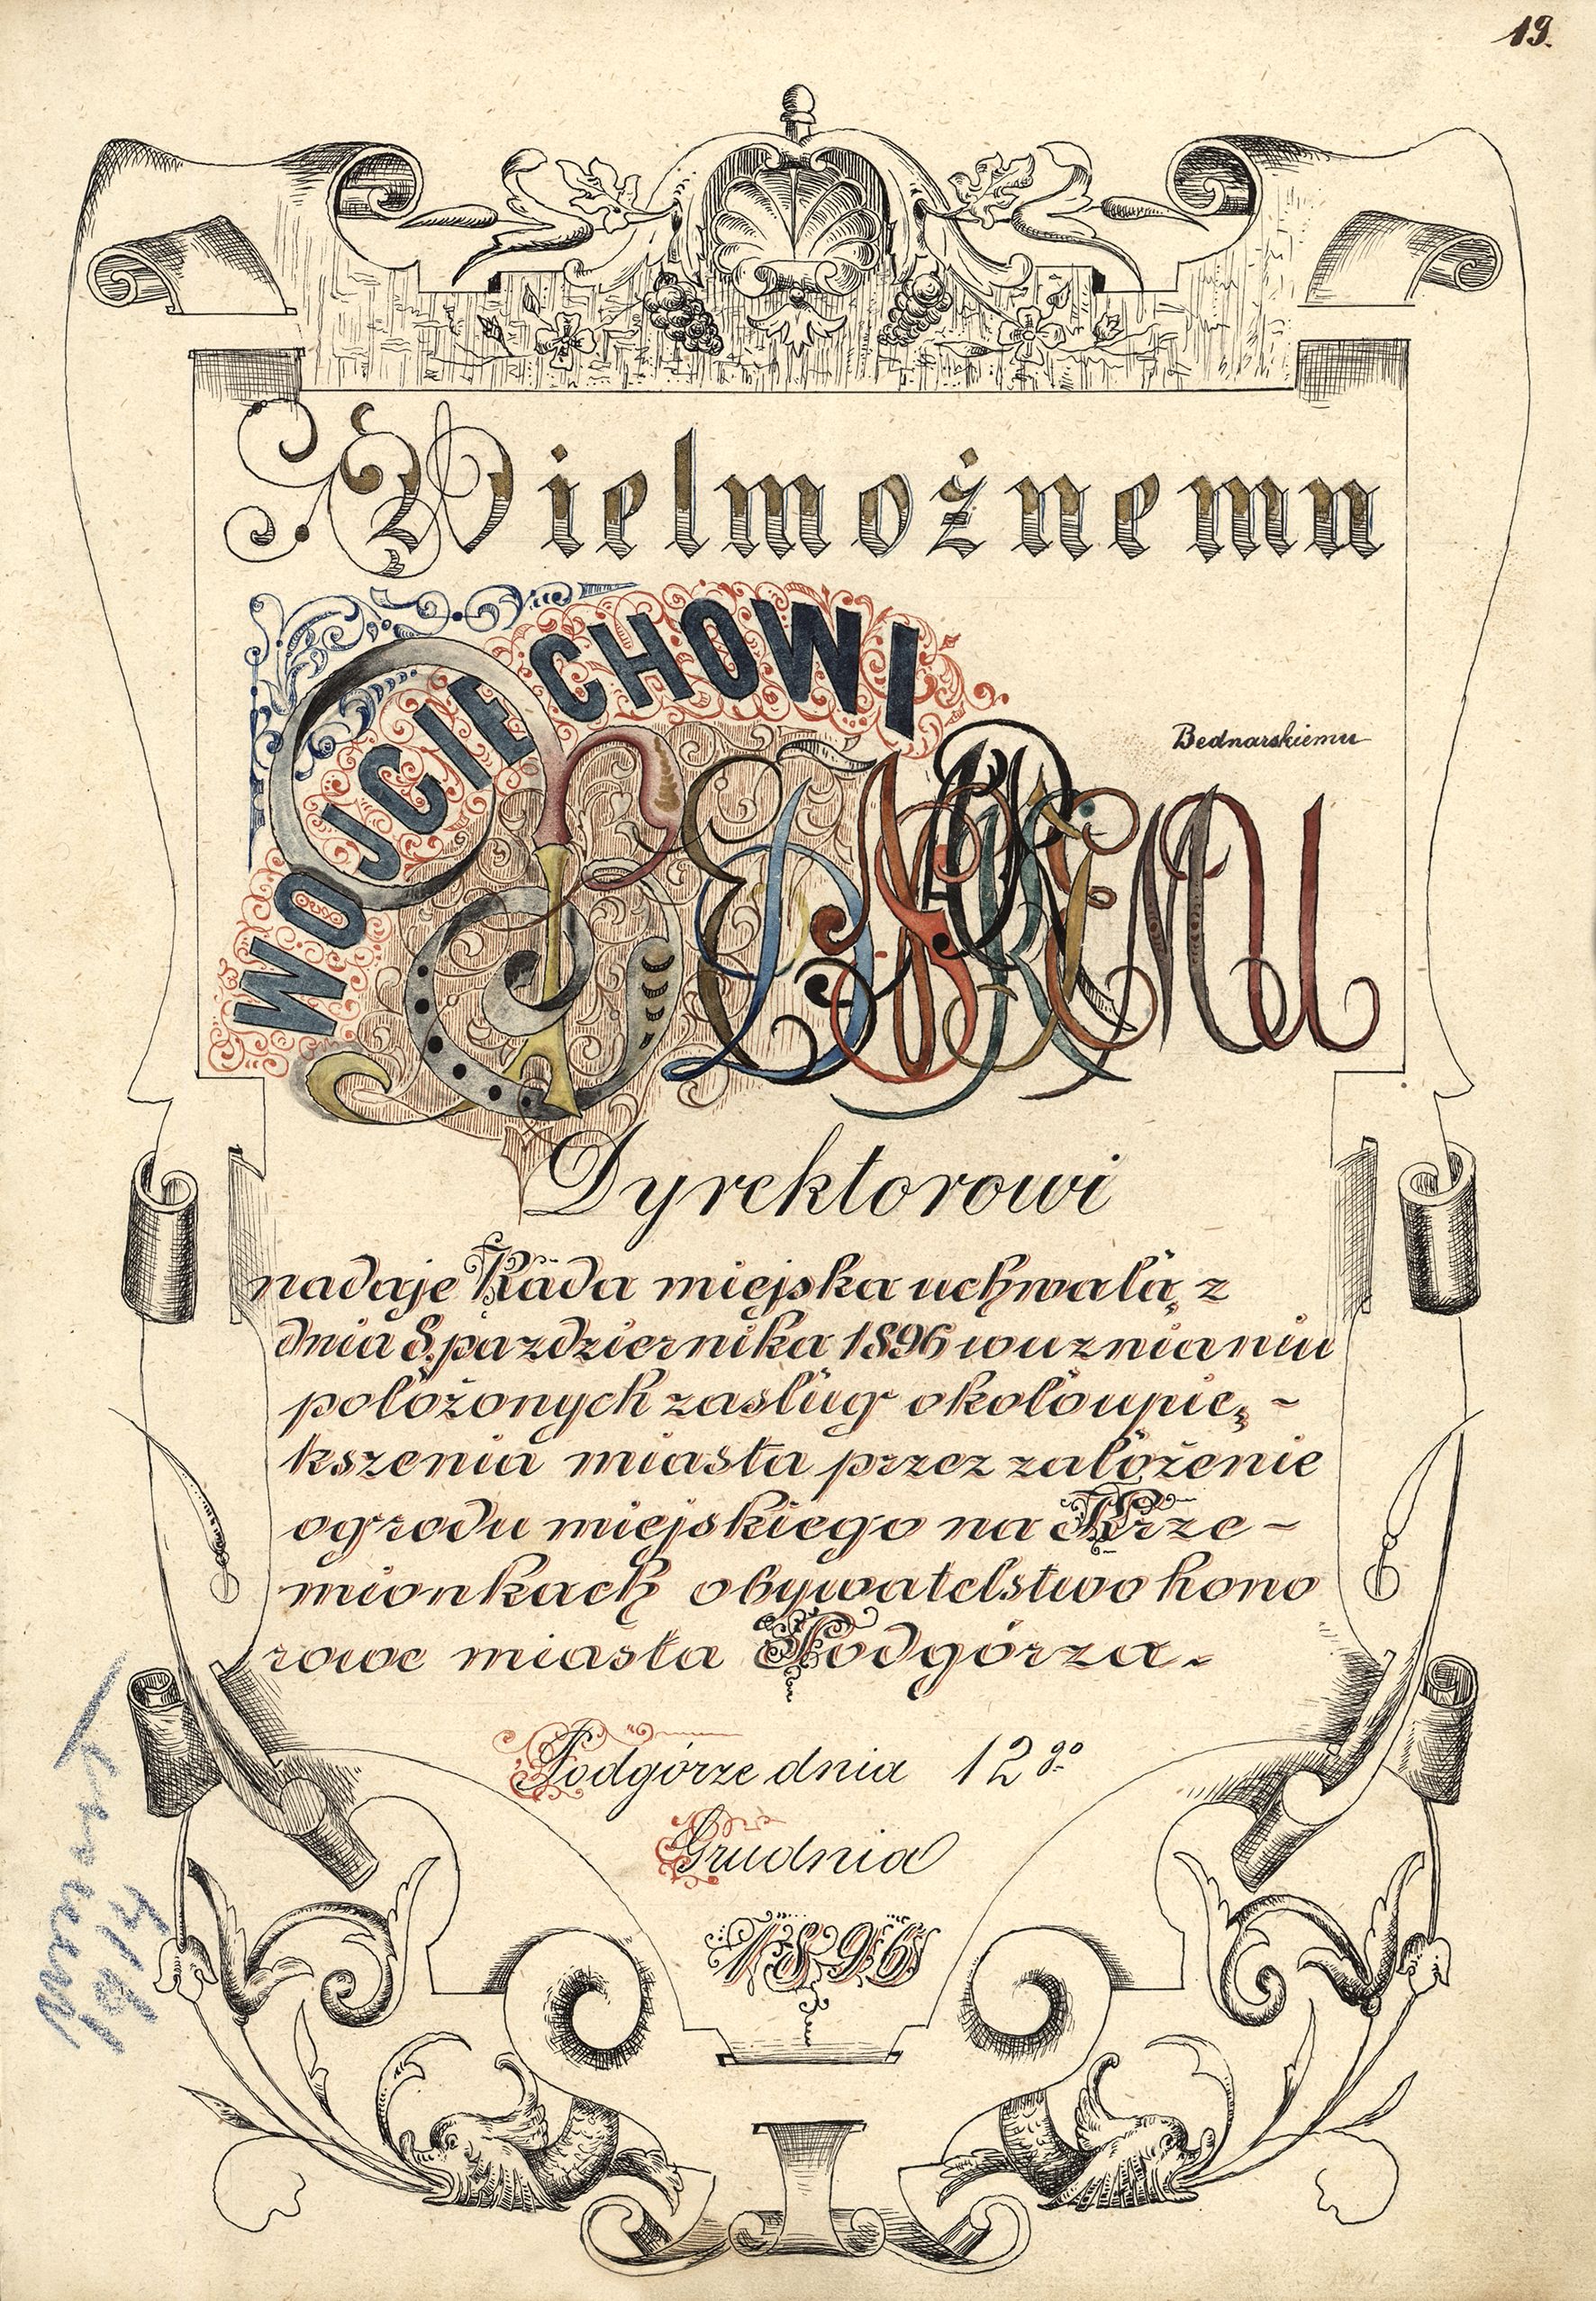 19.
Wielmożnemu
WOJCIECHOWI
Bednarskiemu
BEDNARSKIEMU
Dyrektorowi
nadaje Rada miejska uchwałą z
dnia 8. października 1896 w uznaniu
położonych zasług około upię-
kszenia miasta przez założenie
ogrodu miejskiego na Krze-
mionkach obywatelstwo hono
rowe miasta Podgórza.
Podgórze dnia 12 go
Grudnia
1896
umarł
1914